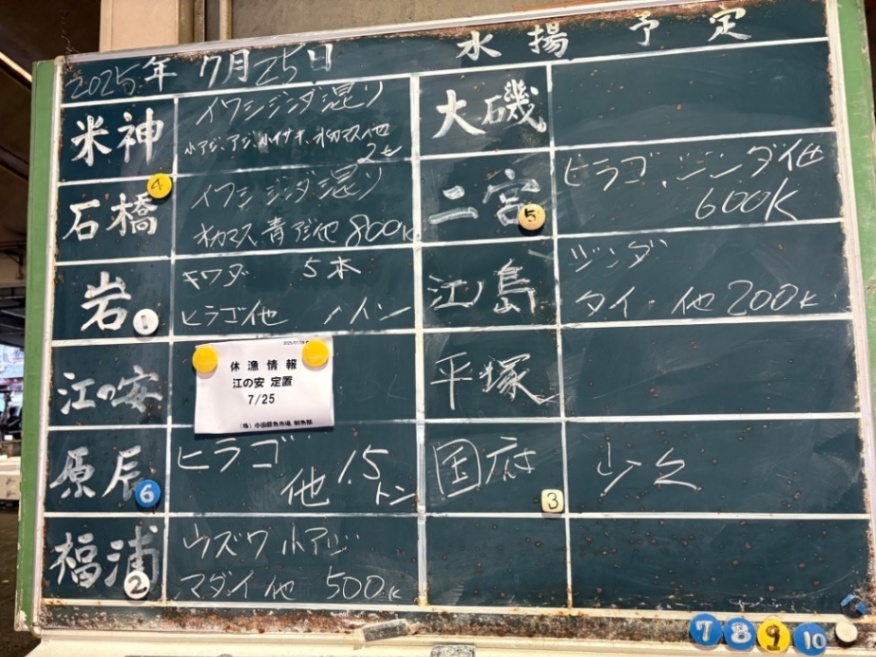 2025年 7月25日 水揚予定
米神
イワシジンダ混り
小アジ、アジ、小イサキ、オカマス他
2t
4
石橋
イワシ ジンダ混り
オカマス 青アジ他 800K
岩
キワダ 5本
ヒラゴ他
1
江の安
休漁情報
江の安 定置
7/25
(株)小田原魚市場 鮮魚部
原辰
ヒラゴ
他 1.5トン
6
福浦
ウズワ 小アジ
マダイ他 500K
2
大磯
二宮
ヒラゴ、ジンダ他
600K
5
江ノ島
ジンダ
タイ、他 200K
平塚
国府
少々
3
7 8 9 10